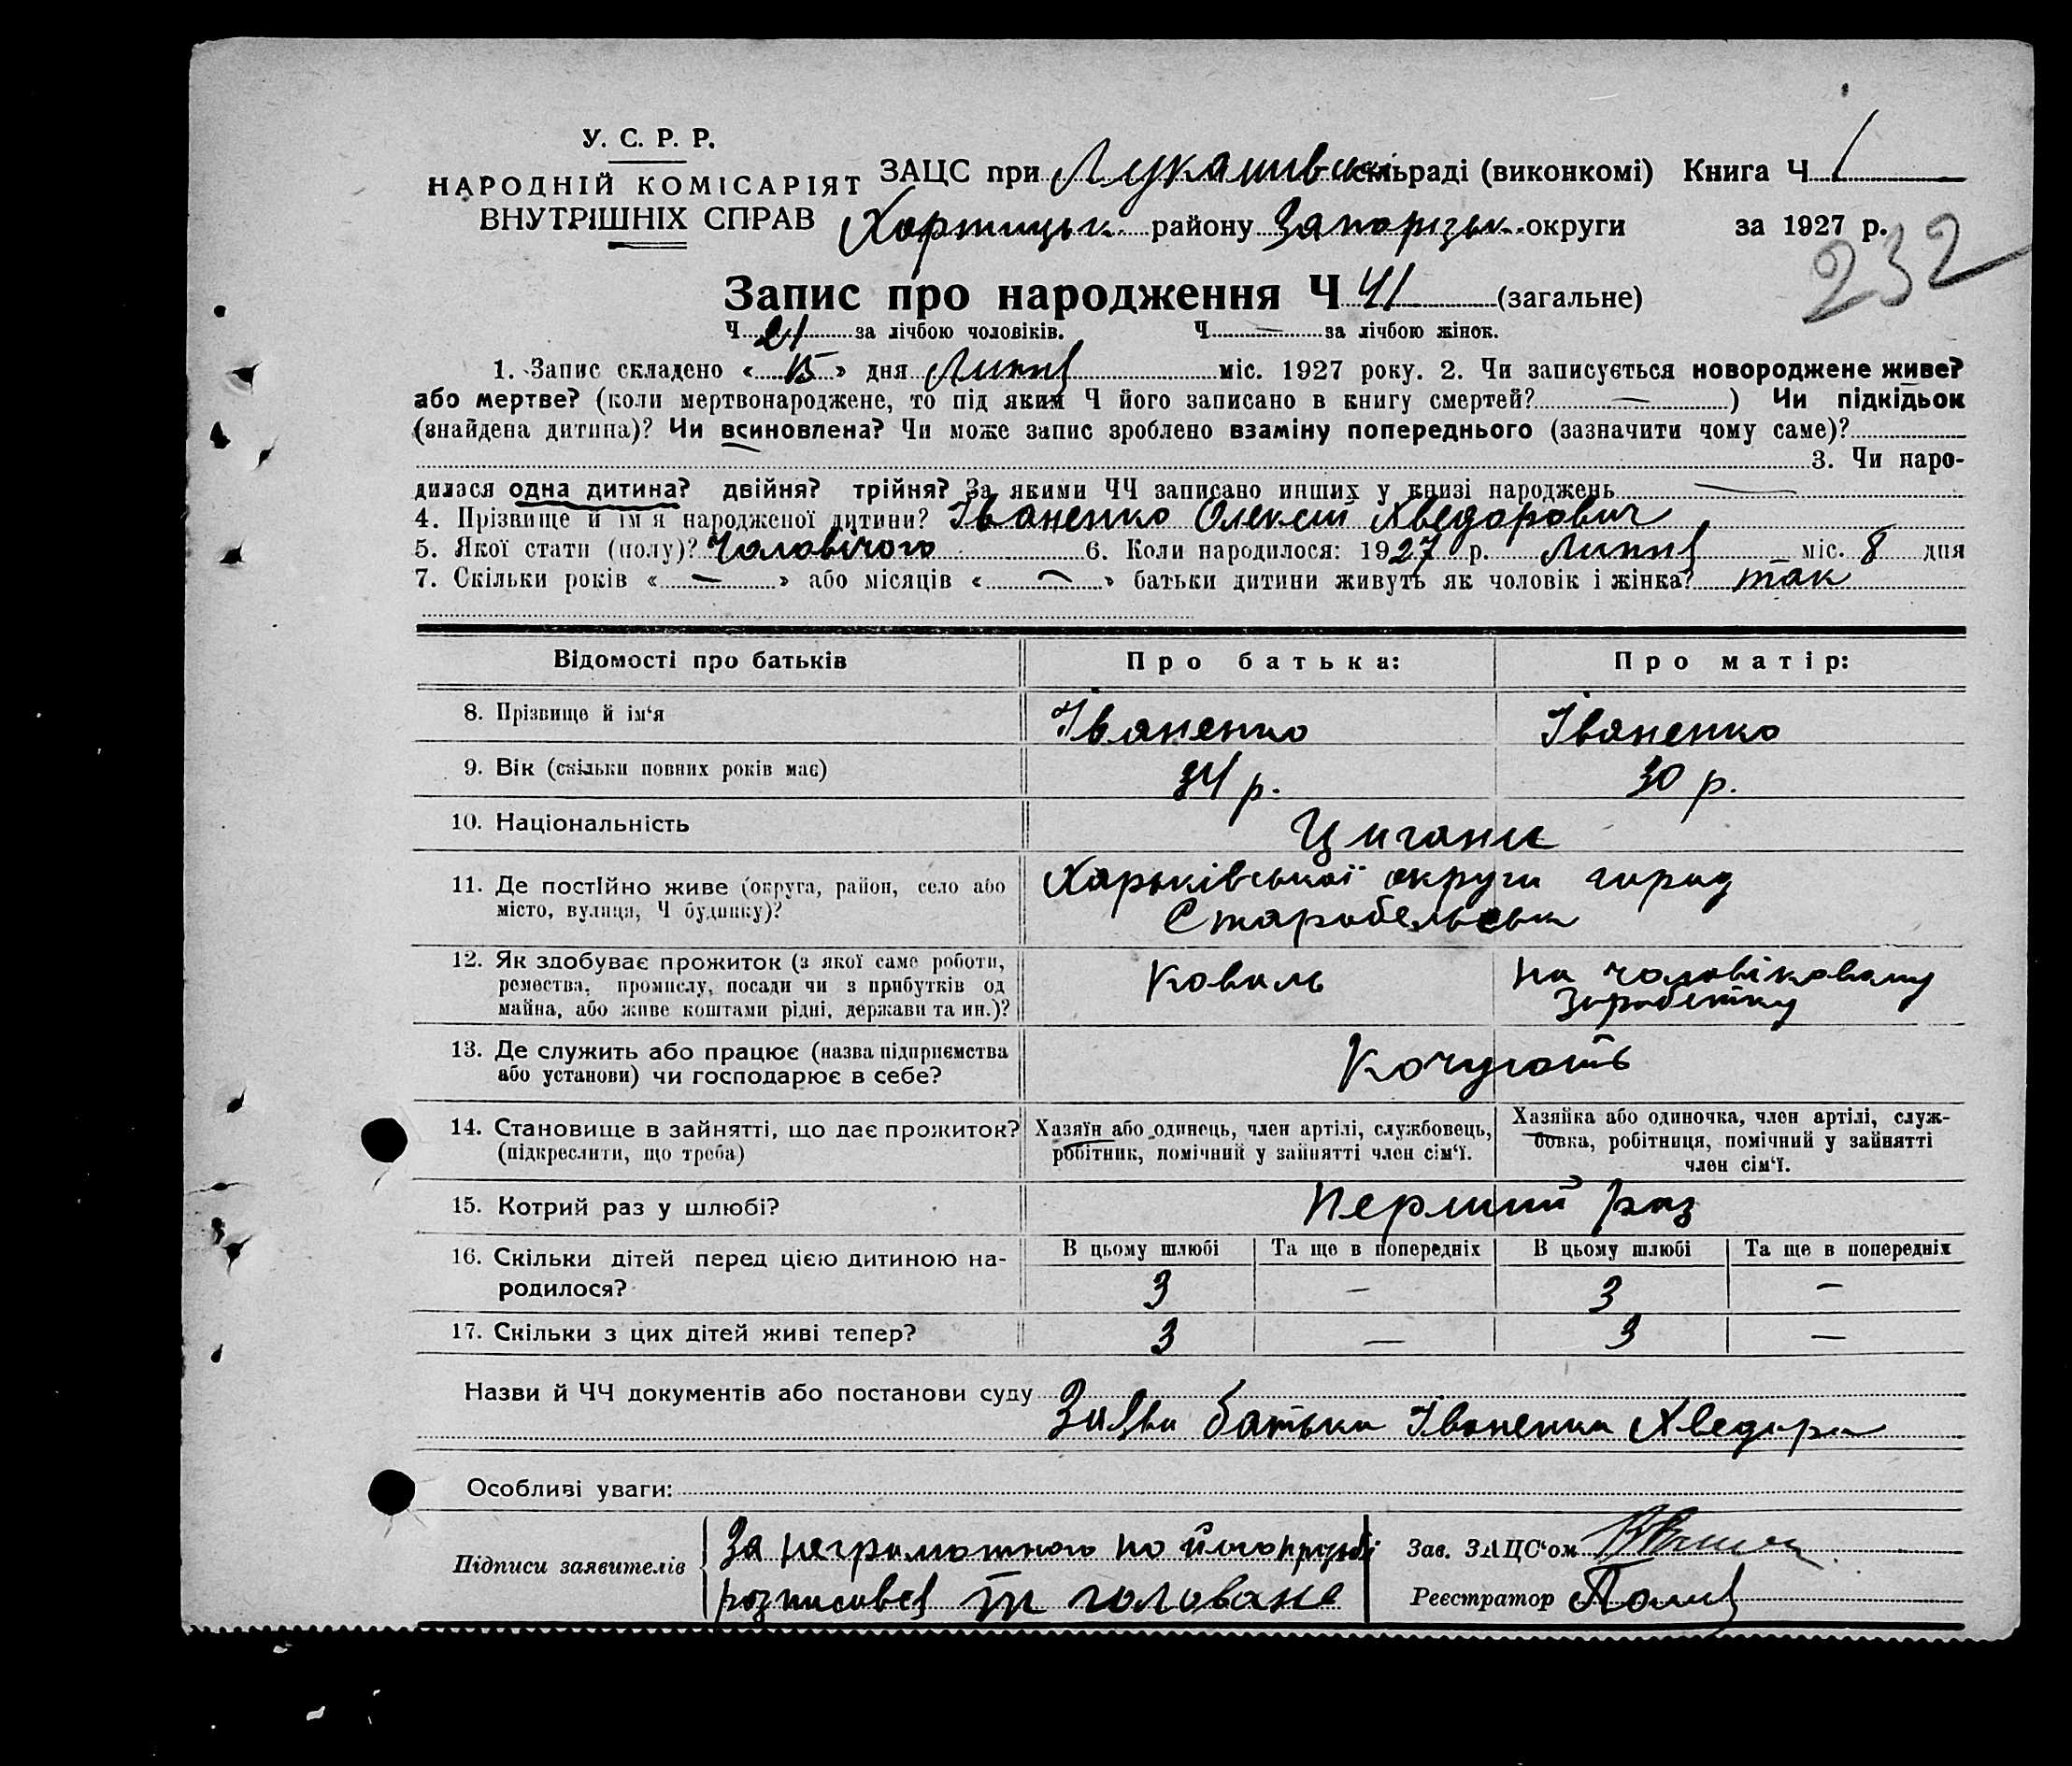 У. С. Р. Р.
НАРОДНІЙ КОМІСАРІЯТ
ВНУТРІШНІХ СПРАВ
ЗАЦС при Лукашівській сільраді (виконкомі) Книга Ч 1
Хортицьк. району Запорізьк. округи за 1927 р.
232
Запис про народження Ч 41 (загальне)
Ч 21 за лічбою чоловіків. Ч — за лічбою жінок.
1. Запис складено « 15 » дня Липня міс. 1927 року. 2. Чи записується новороджене живе?
або мертве? (коли мертвонароджене, то під яким Ч його записано в книгу смертей? — ) Чи підкідьок
(знайдена дитина)? Чи всиновлена? Чи може запис зроблено взаміну попереднього (зазначити чому саме)?
3. Чи наро-
дилася одна дитина? двійня? трійня? За якими ЧЧ записано инших у книзі народжень —
4. Прізвище й ім'я народженої дитини? Іваненко Олексій Хведорович
5. Якої стати (полу)? Чоловічого 6. Коли народилося: 1927 р. Липня міс. 8 дня
7. Скільки років « — » або місяців « — » батьки дитини живуть як чоловік і жінка? так
Відомості про батьків Про батька: Про матір:
8. Прізвище й ім'я Іваненко Іваненко
9. Вік (скільки повних років має) 34 р. 30 р.
10. Національність Цигани
11. Де постійно живе (округа, район, село або Харьківської округи город
місто, вулиця, Ч будинку)? Старобельськ
12. Як здобуває прожиток (з якої саме роботи, Коваль на чоловіковому
ремества, промислу, посади чи з прибутків од заробітку
майна, або живе коштами рідні, держави та ин.)?
13. Де служить або працює (назва підприємства Кочують
або установи) чи господарює в себе?
14. Становище в зайнятті, що дає прожиток? Хазяїн або одинець, член артілі, службовець, Хазяйка або одиночка, член артілі, служ-
(підкреслити, що треба) робітник, помічний у зайнятті член сім'ї. бовка, робітниця, помічний у зайнятті
член сім'ї.
15. Котрий раз у шлюбі? Перший раз
16. Скільки дітей перед цією дитиною на- В цьому шлюбі Та ще в попередніх В цьому шлюбі Та ще в попередніх
родилося? 3 — 3 —
17. Скільки з цих дітей живі тепер? 3 — 3 —
Назви й ЧЧ документів або постанови суду
Заява батька Іваненка Хведора
Особливі уваги:
Підписи заявителів За неграмотного по його прозьбі Зав. ЗАЦС'ом
розписавсь Реєстратор